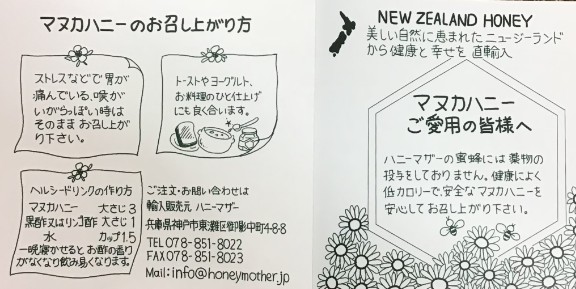 マヌカハニーのお召し上がり方
ストレスなどで胃が
痛んでいる、喉が
いがらっぽい時は
そのままお召し上が
り下さい。
トーストやヨーグルト、
お料理のひと仕上げ
にも良く合います。
ヘルシードリンクの作り方
マヌカハニー 大さじ3
黒酢又はリンゴ酢 大さじ1
水 カップ1.5
一晩寝かせると お酢の香り
がなくなり飲み易くなります。
ご注文・お問い合わせは
輸入販売元 ハニーマザー
兵庫県神戸市東灘区御影中町4-8-8
TEL 078-851-8022
FAX 078-851-8023
Mail: info@honeymother.jp
NEW ZEALAND HONEY
美しい自然に恵まれたニュージーランド
から健康と幸せを 直輸入
マヌカハニー
ご愛用の皆様へ
ハニーマザーの蜜蜂には薬物の
投与をしておりません。健康によく
低カロリーで、安全なマヌカハニーを
安心してお召し上がり下さい。